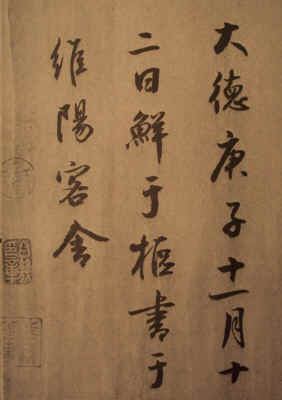 大德庚子十一月十
二日鮮于樞書于
維陽客舍